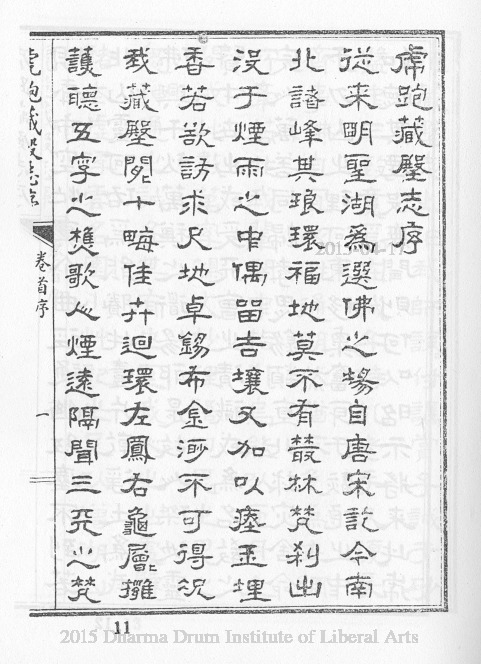 虎跑藏壂志序
從来明聖湖為選佛之場自唐宋訖今南
北諸峰其琅環福地莫不有叢林梵刹出
没于煙雨之中偶留吉壤又加以瘞玉埋
香若欲訪求尺地卓錫布金渺不可得况
我藏壂閟十畮佳卉迴環左鳳右龜層巒
護聽五字之樵歌心煙遠隔聞三天之梵
卷首序
一
11
2015 Dharma Drum Institute of Liberal Arts